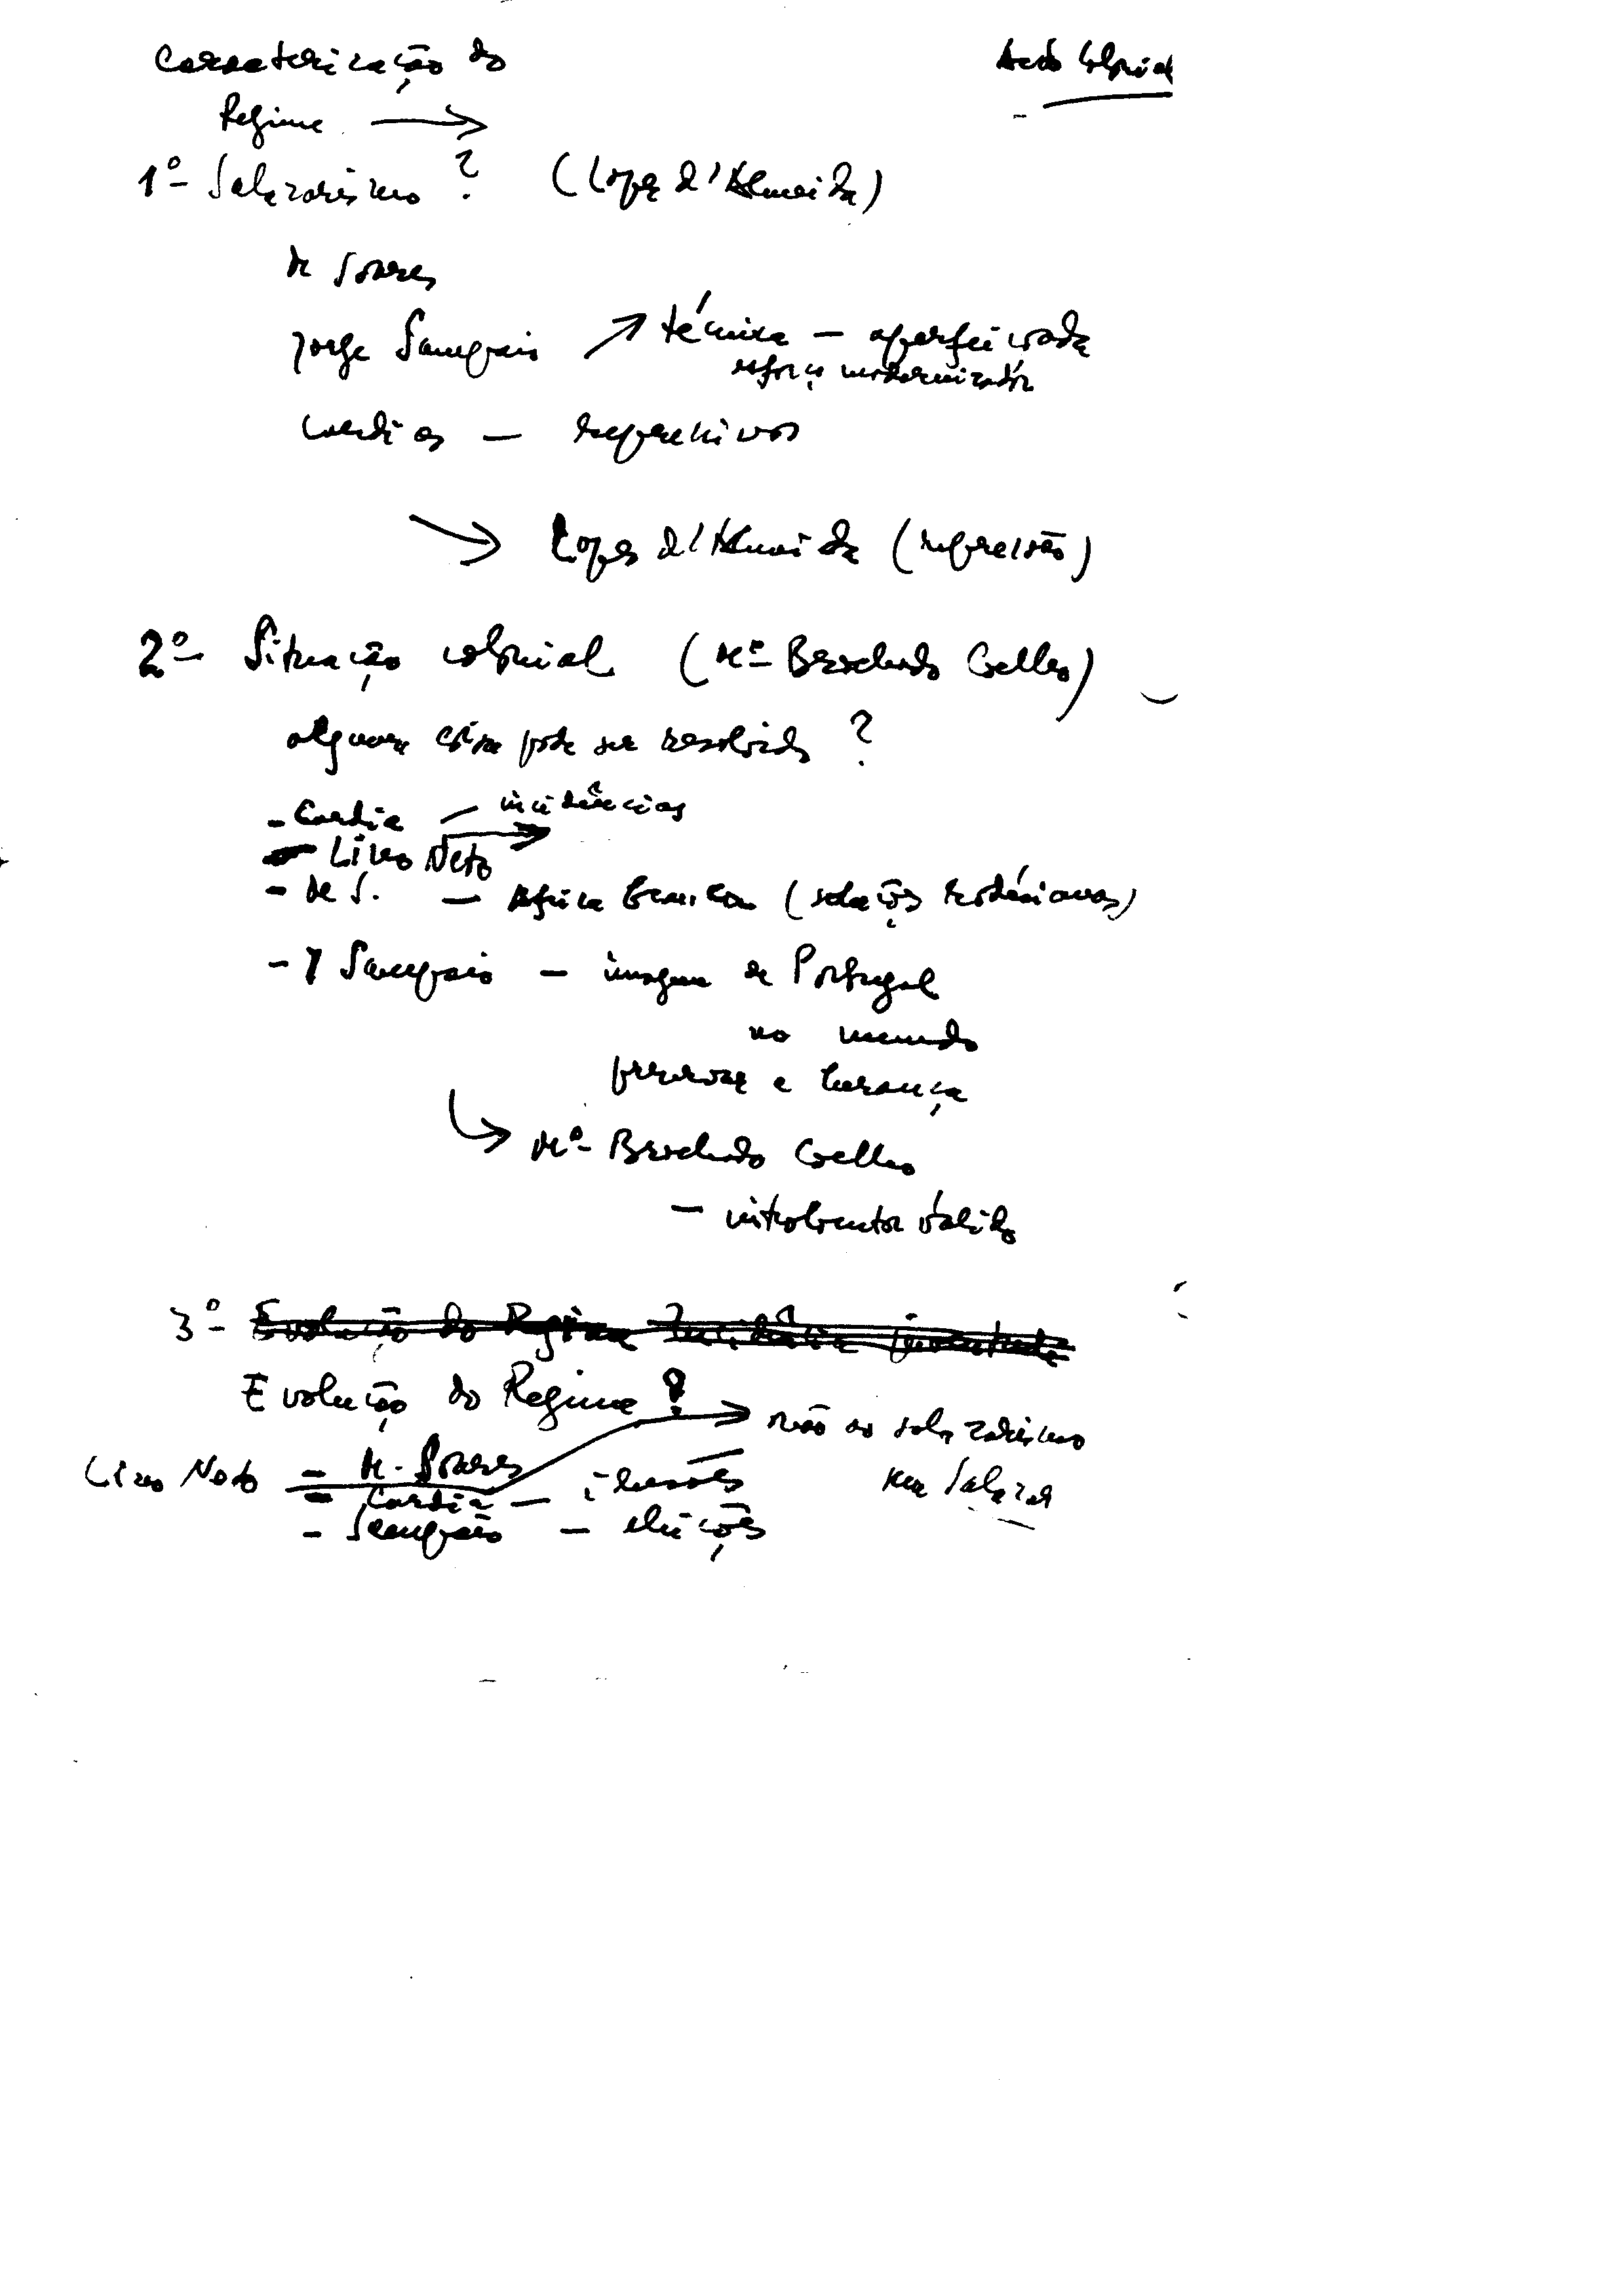 Caracterização do
Regime →
Acto Colonial
1º - Salazarismo ? (Lopes d'Almeida)
M Soares
Jorge Sampaio ↗ técnica - aperfeiçoada
esforço modernizador
Cardia - repressivos
→ Lopes d'Almeida (repressão)
2º - Situação colonial (Mº - Barbosa Coelho)
alguma coisa pode ser resolvida ?
- Cardia - incidências
- Lino Neto →
- M S. - África branca (relações rodesianas)
- J Sampaio - imagem de Portugal
no mundo
preservar a herança
→ Mº - Coelho
- interlocutor válido
3º - Evolução do Regime
Evolução do Regime ?
→ não ao salazarismo
sem Salazar
Lino Neto - M. Soares
- Cardia - ilusões
- Sampaio - eleições